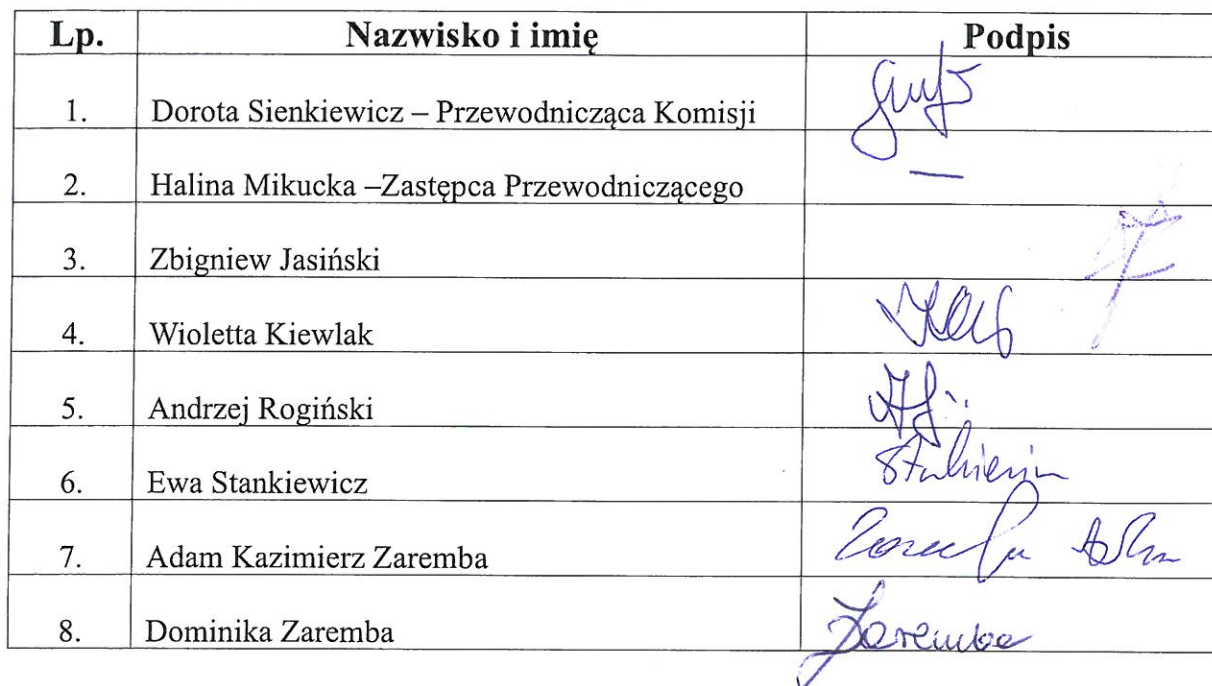 Lp. Nazwisko i imię Podpis
1. Dorota Sienkiewicz – Przewodnicząca Komisji
2. Halina Mikucka –Zastępca Przewodniczącego —
3. Zbigniew Jasiński
4. Wioletta Kiewlak
5. Andrzej Rogiński
6. Ewa Stankiewicz
7. Adam Kazimierz Zaremba
8. Dominika Zaremba Zaremba